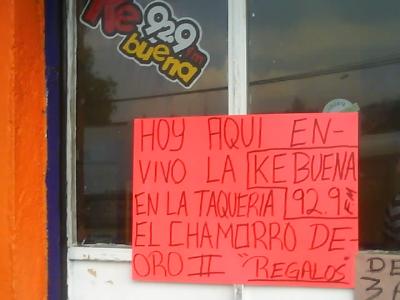 Ke
92.9 fm
buena
HOY AQUI EN-
VIVO LA KE BUENA
EN LA TAQUERIA 92.9 FM
EL CHAMORRO DE-
ORO II "REGALOS"
DE
3 A